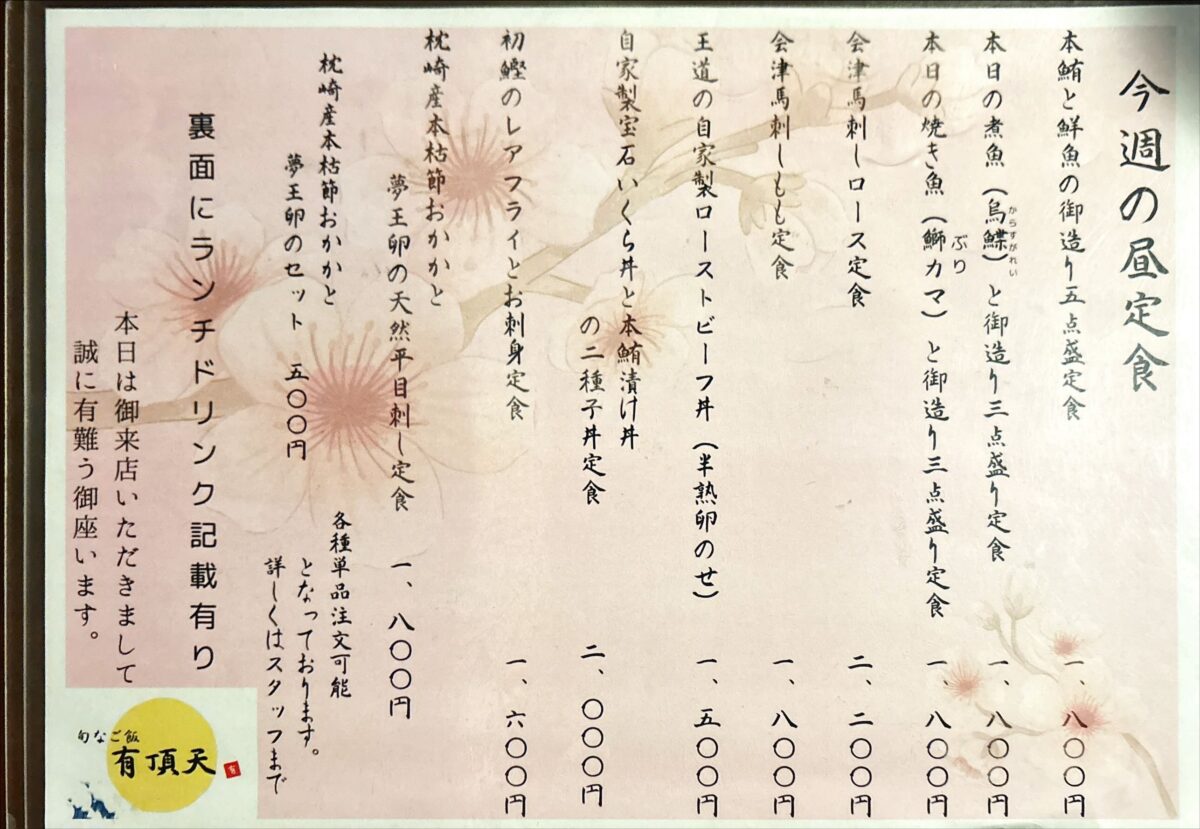 今週の昼定食
本鮪と鮮魚の御造り五点盛定食 一、八〇〇円
本日の煮魚（烏鰈）と御造り三点盛り定食 一、八〇〇円
からすがれい
本日の焼き魚（鰤カマ）と御造り三点盛り定食 一、八〇〇円
ぶり
会津馬刺しロース定食 二、二〇〇円
会津馬刺しもも定食 一、八〇〇円
王道の自家製ローストビーフ丼（半熟卵のせ） 一、五〇〇円
自家製宝石いくら丼と本鮪漬け丼
の二種子丼定食 二、〇〇〇円
初鰹のレアフライとお刺身定食 一、六〇〇円
枕崎産本枯節おかかと
夢王卵の天然平目刺し定食 一、八〇〇円
枕崎産本枯節おかかと
夢王卵のセット 五〇〇円
各種単品注文可能
となっております。
詳しくはスタッフまで
裏面にランチドリンク記載有り
本日は御来店いただきまして
誠に有難う御座います。
旬なご飯
有頂天
有